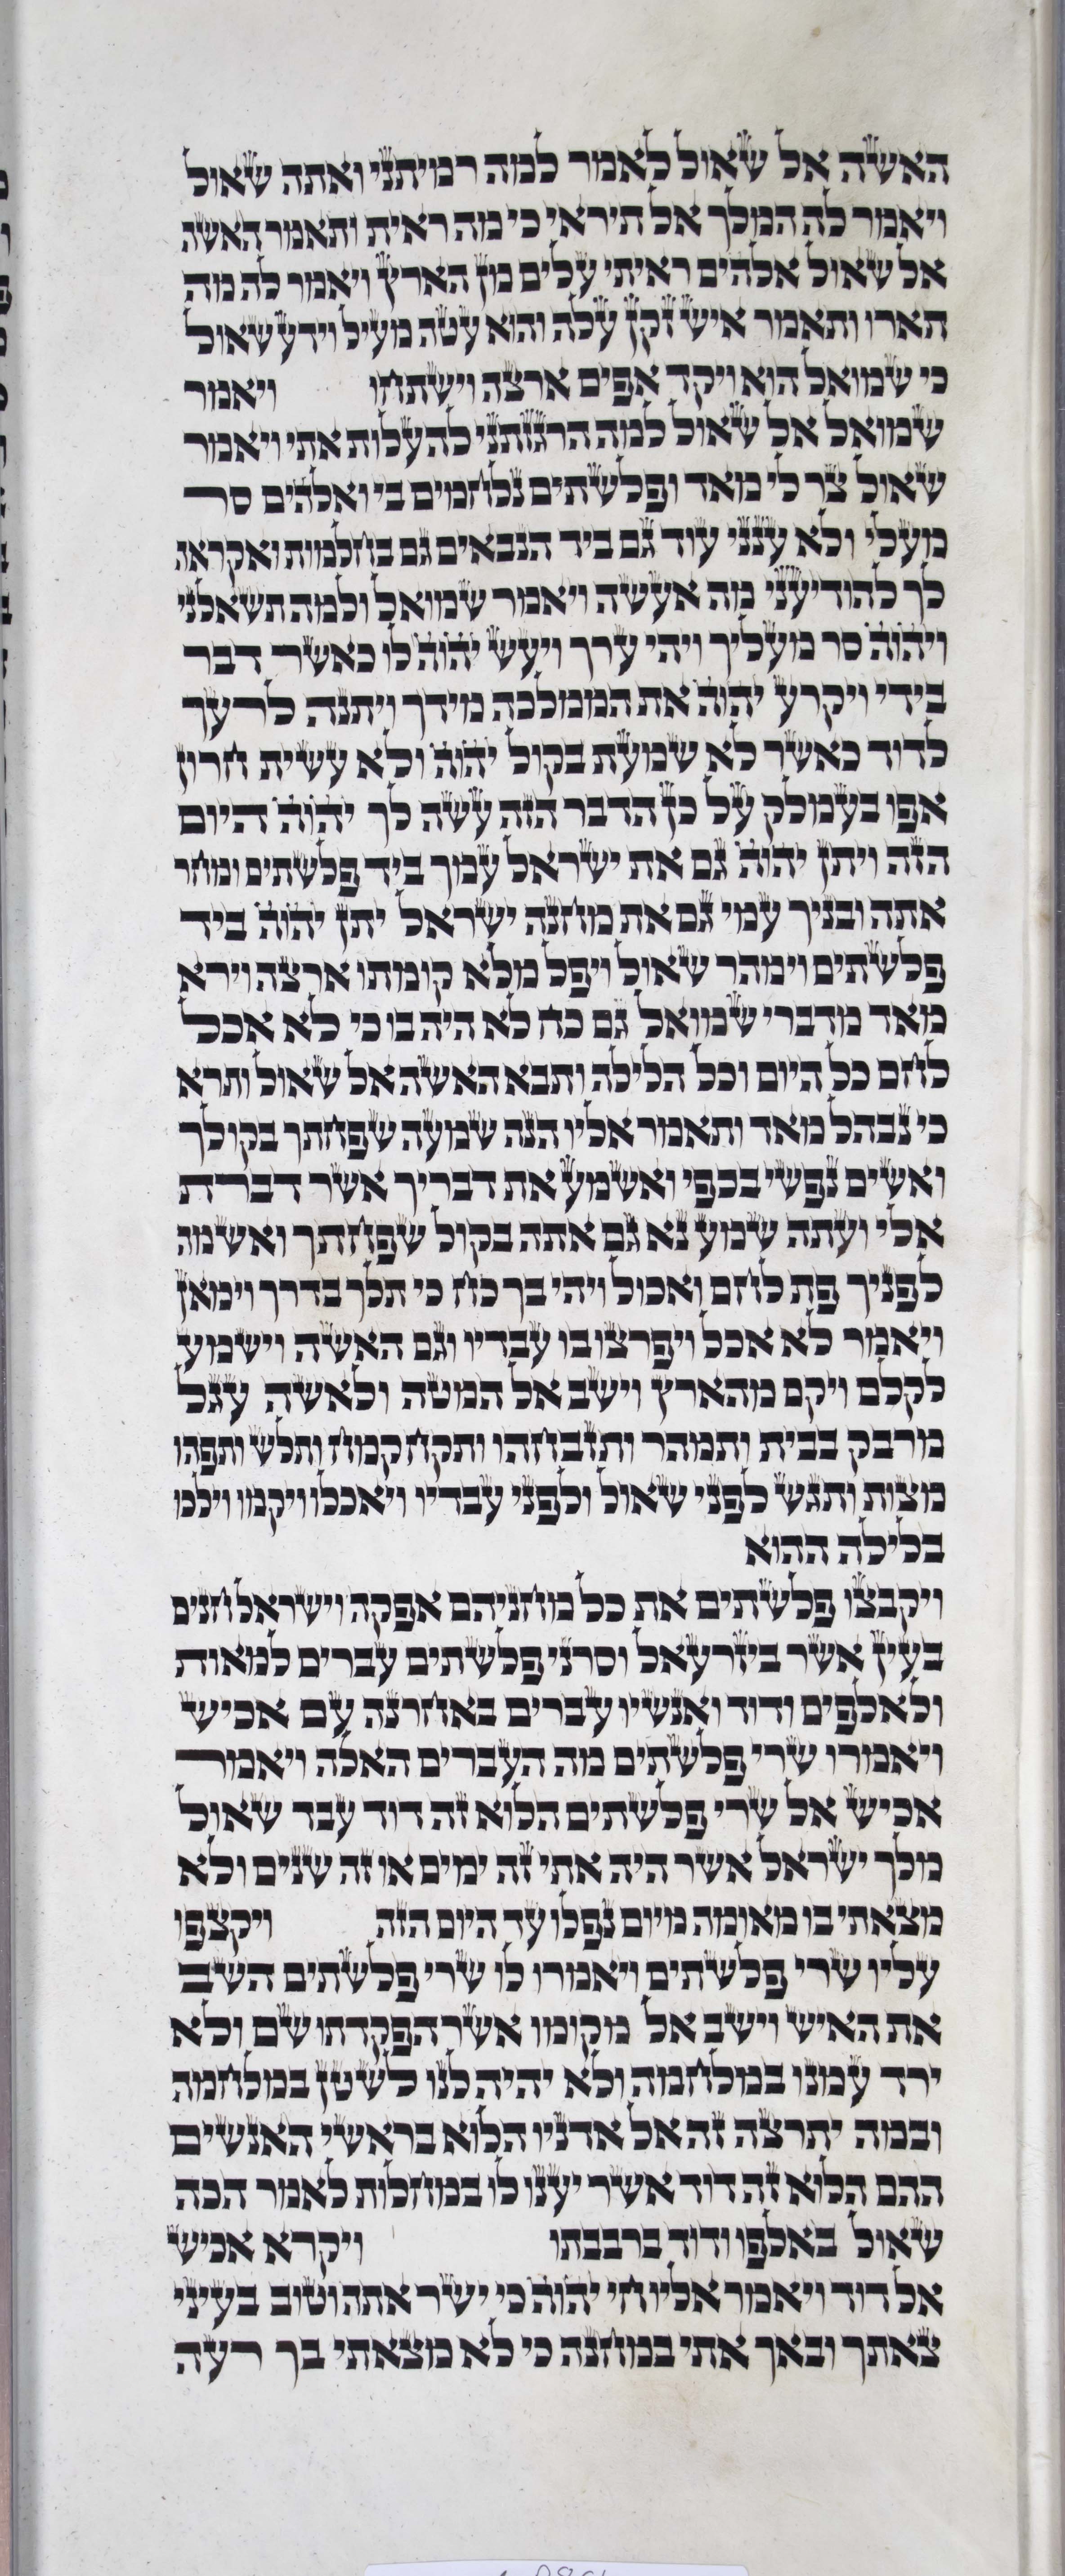 האשה אל שאול לאמר למה רמיתני ואתה שאול
ויאמר לה המלך אל תיראי כי מה ראית ותאמר האשה
אל שאול אלהים ראיתי עלים מן הארץ ויאמר לה מה
תארו ותאמר איש זקן עלה והוא עטה מעיל וידע שאול
כי שמואל הוא ויקד אפים ארצה וישתחו ויאמר
שמואל אל שאול למה הרגזתני להעלות אתי ויאמר
שאול צר לי מאד ופלשתים נלחמים בי ואלהים סר
מעלי ולא ענני עוד גם ביד הנבאים גם בחלמות ואקראה
לך להודיעני מה אעשה ויאמר שמואל ולמה תשאלני
ויהוה סר מעליך ויהי ערך ויעש יהוה לו כאשר דבר
בידי ויקרע יהוה את הממלכה מידך ויתנה לרעך
לדוד כאשר לא שמעת בקול יהוה ולא עשית חרון
אפו בעמלק על כן הדבר הזה עשה לך יהוה היום
הזה ויתן יהוה גם את ישראל עמך ביד פלשתים ומחר
אתה ובניך עמי גם את מחנה ישראל יתן יהוה ביד
פלשתים וימהר שאול ויפל מלא קומתו ארצה וירא
מאד מדברי שמואל גם כח לא היה בו כי לא אכל
לחם כל היום וכל הלילה ותבא האשה אל שאול ותרא
כי נבהל מאד ותאמר אליו הנה שמעה שפחתך בקולך
ואשים נפשי בכפי ואשמע את דבריך אשר דברת
אלי ועתה שמע נא גם אתה בקול שפחתך ואשמה
לפניך פת לחם ואכול ויהי בך כח כי תלך בדרך וימאן
ויאמר לא אכל ויפרצו בו עבדיו וגם האשה וישמע
לקלם ויקם מהארץ וישב אל המטה ולאשה עגל
מרבק בבית ותמהר ותזבחהו ותקח קמח ותלש ותפהו
מצות ותגש לפני שאול ולפני עבדיו ויאכלו ויקמו וילכו
בלילה ההוא
ויקבצו פלשתים את כל מחניהם אפקה וישראל חנים
בעין אשר ביזרעאל וסרני פלשתים עברים למאות
ולאלפים ודוד ואנשיו עברים באחרנה עם אכיש
ויאמרו שרי פלשתים מה העברים האלה ויאמר
אכיש אל שרי פלשתים הלוא זה דוד עבד שאול
מלך ישראל אשר היה אתי זה ימים או זה שנים ולא
מצאתי בו מאומה מיום נפלו עד היום הזה ויקצפו
עליו שרי פלשתים ויאמרו לו שרי פלשתים השב
את האיש וישב אל מקומו אשר הפקדתו שם ולא
ירד עמנו במלחמה ולא יהיה לנו לשטן במלחמה
ובמה יתרצה זה אל אדניו הלוא בראשי האנשים
ההם הלוא זה דוד אשר יענו לו במחלות לאמר הכה
שאול באלפו ודוד ברבבתו ויקרא אכיש
אל דוד ויאמר אליו חי יהוה כי ישר אתה וטוב בעיני
צאתך ובאך אתי במחנה כי לא מצאתי בך רעה